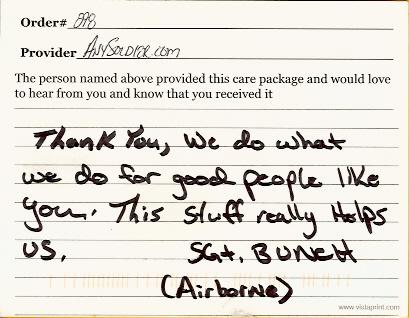 Order# 898
Provider AnySoldier.com
The person named above provided this care package and would love
to hear from you and know that you received it
Thank You, We do what
we do for good people like
you. This stuff really Helps
us. SGt. BUNCH
(Airborne)
www.vistaprint.com